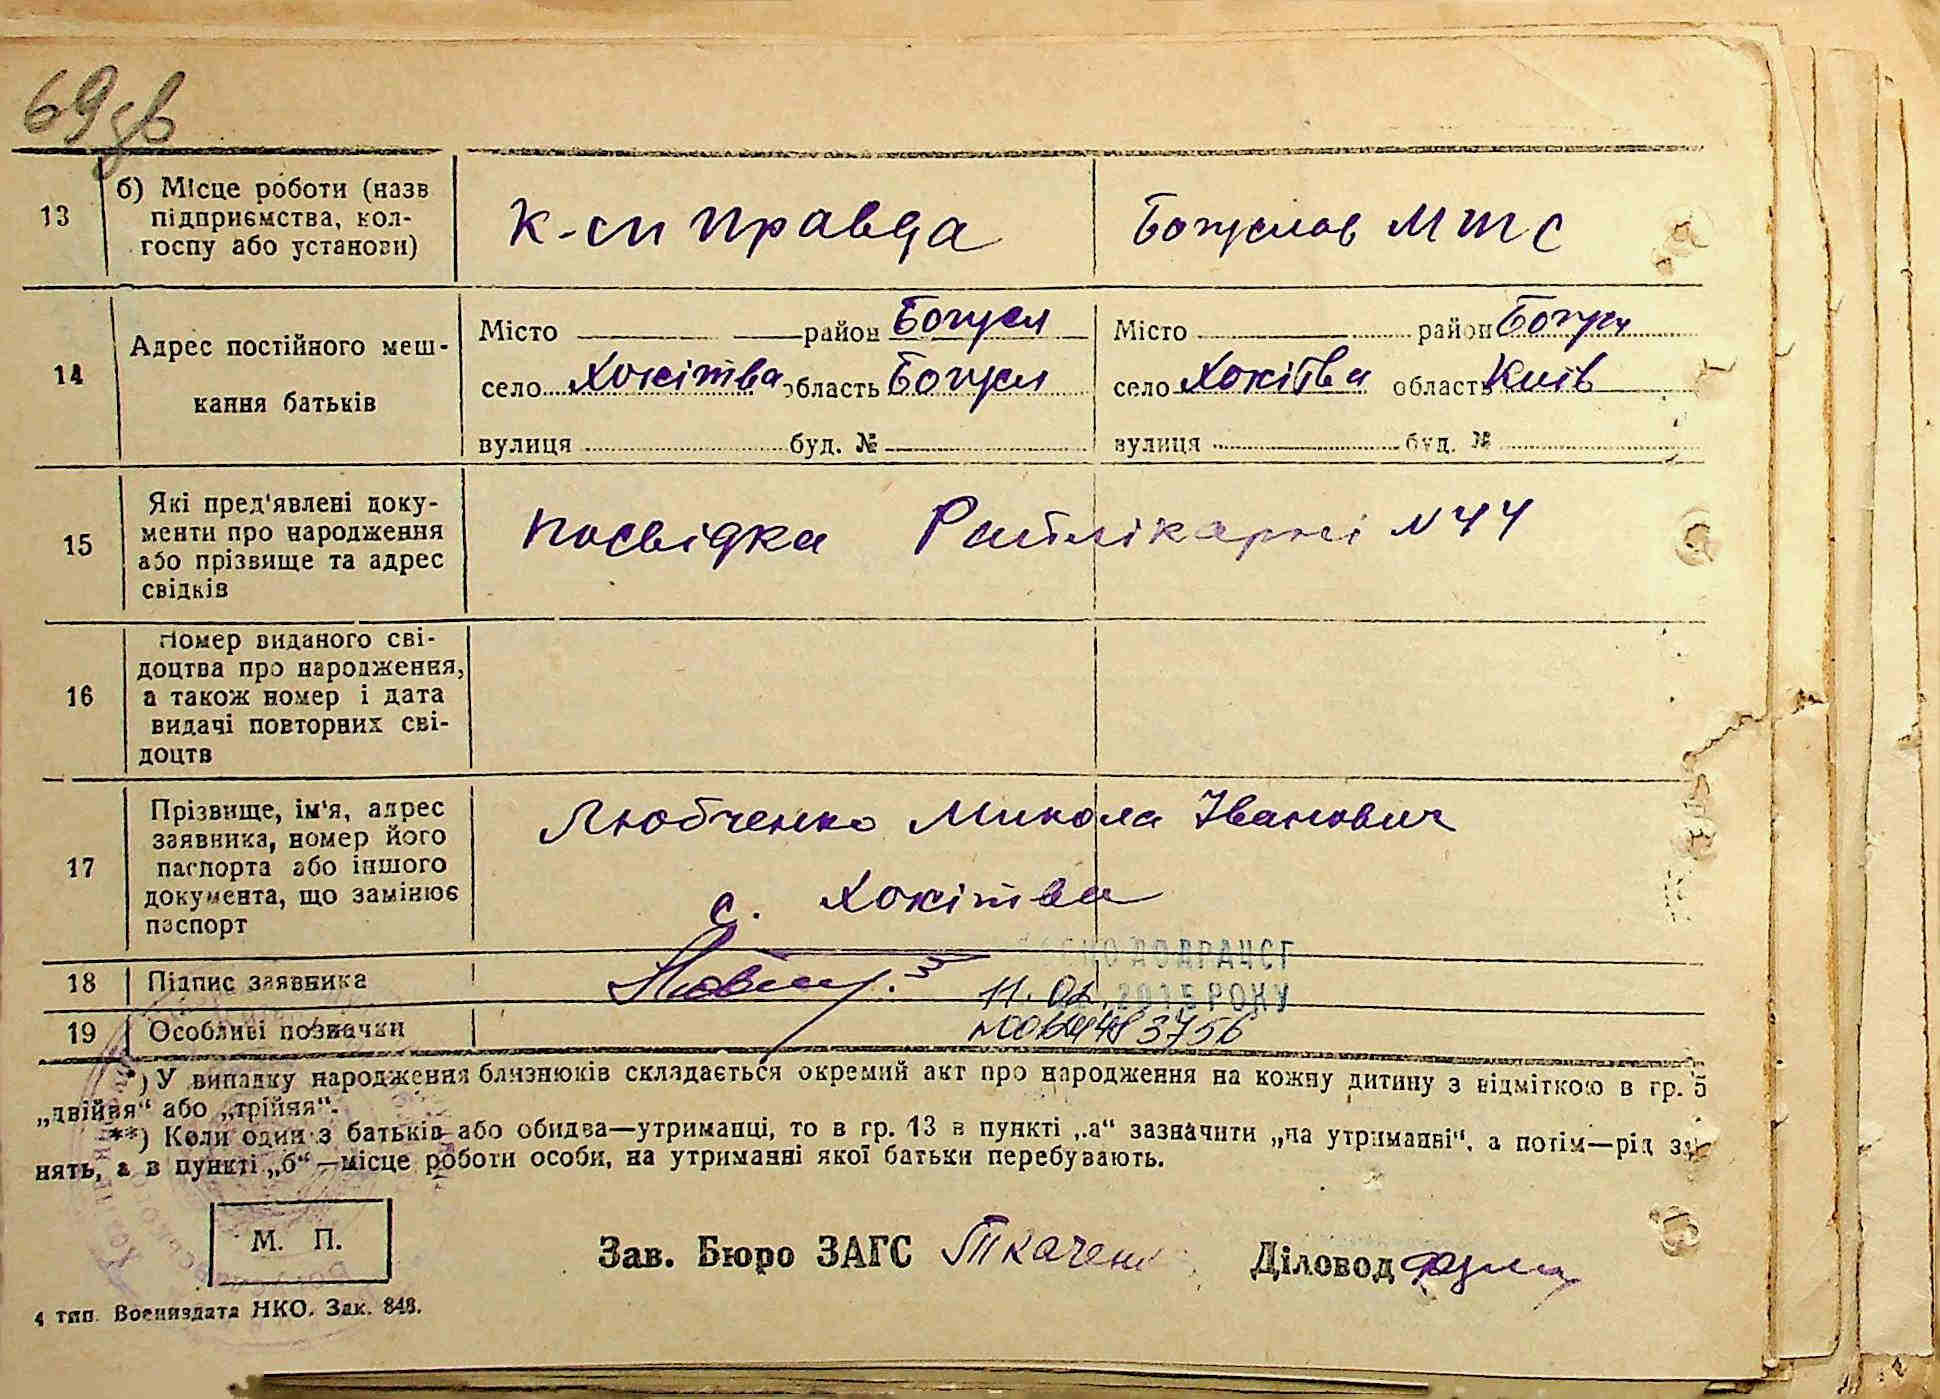 69 зв
13 б) Місце роботи (назв К-сп Правда Богуслав МТС
підприємства, кол-
госпу або установи)
14 Адрес постійного меш- Місто район Богусл Місто район Богусл
кання батьків село Хохітва область Богусл село Хохітва область Київ
вулиця буд. № вулиця буд. №
15 Які пред'явлені доку- Посвідка Райлікарні N 44
менти про народження
або прізвище та адрес
свідків
16 Номер виданого сві-
доцтва про народження,
а також номер і дата
видачі повторних сві-
доцтв
17 Прізвище, ім'я, адрес Любченко Микола Іванович
заявника, номер його
паспорта або іншого
документа, що замінює с. Хохітва
паспорт
ДОДРАЦСГ
18 Підпис заявника
11. 02. 2015 РОКУ
19 Особливі позначки
*) У випадку народження близнюків складається окремий акт про народження на кожну дитину з відміткою в гр. 5
„двійня“ або „трійня“.
**) Коли один з батьків або обидва—утриманці, то в гр. 13 в пункті „а“ зазначити „на утриманні“, а потім—рід за-
нять, а в пункті „б“—місце роботи особи, на утриманні якої батьки перебувають.
М. П.
Зав. Бюро ЗАГС Ткачен Діловод
4 тип. Воениздата НКО. Зак. 848.